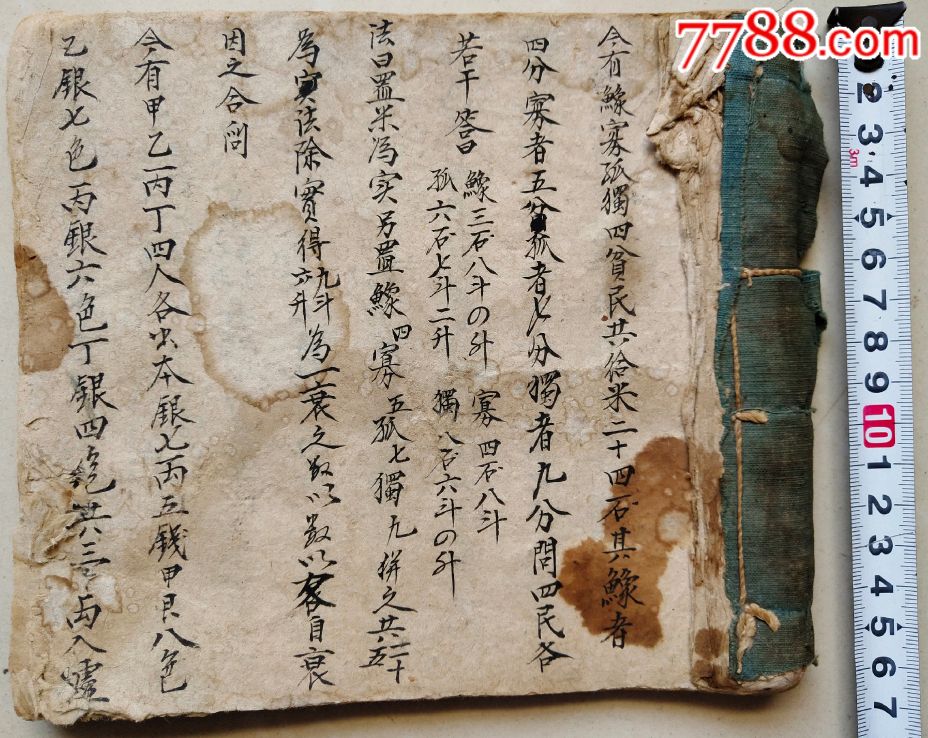 今有鰥寡孤獨四貧民共給米二十四石其鰥者
四分寡者五分孤者七分獨者九分問四民各
若干 答曰 鰥三石八斗の升 寡四石八斗
孤六石七斗二升 獨八石六斗の升
法曰置米為实另置鰥四寡五孤七獨九併之共二十五
為实法除實得九斗六升為一衰之数以数以各自衰
因之合问
今有甲乙丙丁四人各出本銀七两五錢甲艮八色
乙銀七色丙銀六色丁銀四色共三两入爐
7788.com
2 3 4 5 6 7 8 9 10 1 2 3 4 5 6 7
3m